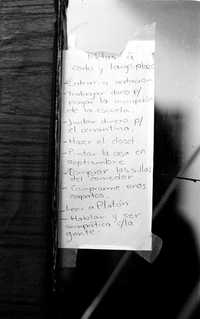 Metas a
corto y largo plazo
- Entrar a natación
- Trabajar duro p/
pagar la inscripción
de la escuela.
- Juntar dinero p/
el
- Hacer el closet
- Pintar la casa en
septiembre
- Comprar las sillas
del comedor
- Comprarme unos
zapatos.
- Leer a Platón
- Hablar y ser
simpática c/la
gente.